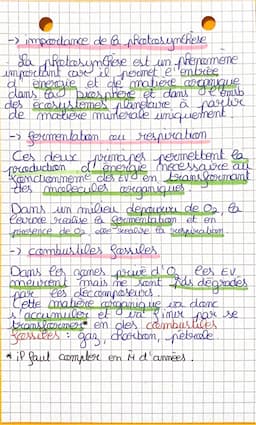 -> importance de la photosynthèse
La photosynthèse est un phénomène
important car il permet l'entrée
d'énergie et de matière organique
dans la biosphère et dans
des écosystèmes planétaire à partir
de matière minérale uniquement.
-> fermentation ou respiration
Ces deux permettent la
production d'énergie nécessaire au
fonctionnement des EV en transformant
des molécules organiques
Dans un milieu dépourvu de O2, la
levure réalise la fermentation et en
présence de O2, elle réalise la respiration
-> combustibles fossiles
Dans les zones privé d'O2 les EV
meurent mais ne sont pas dégradés
par les décomposeurs.
Cette matière organique va donc
s'accumuler et va finir par se
transformer* en des combustibles
fossiles : gaz, charbon, pétrole.
* il faut compter en M d'années.